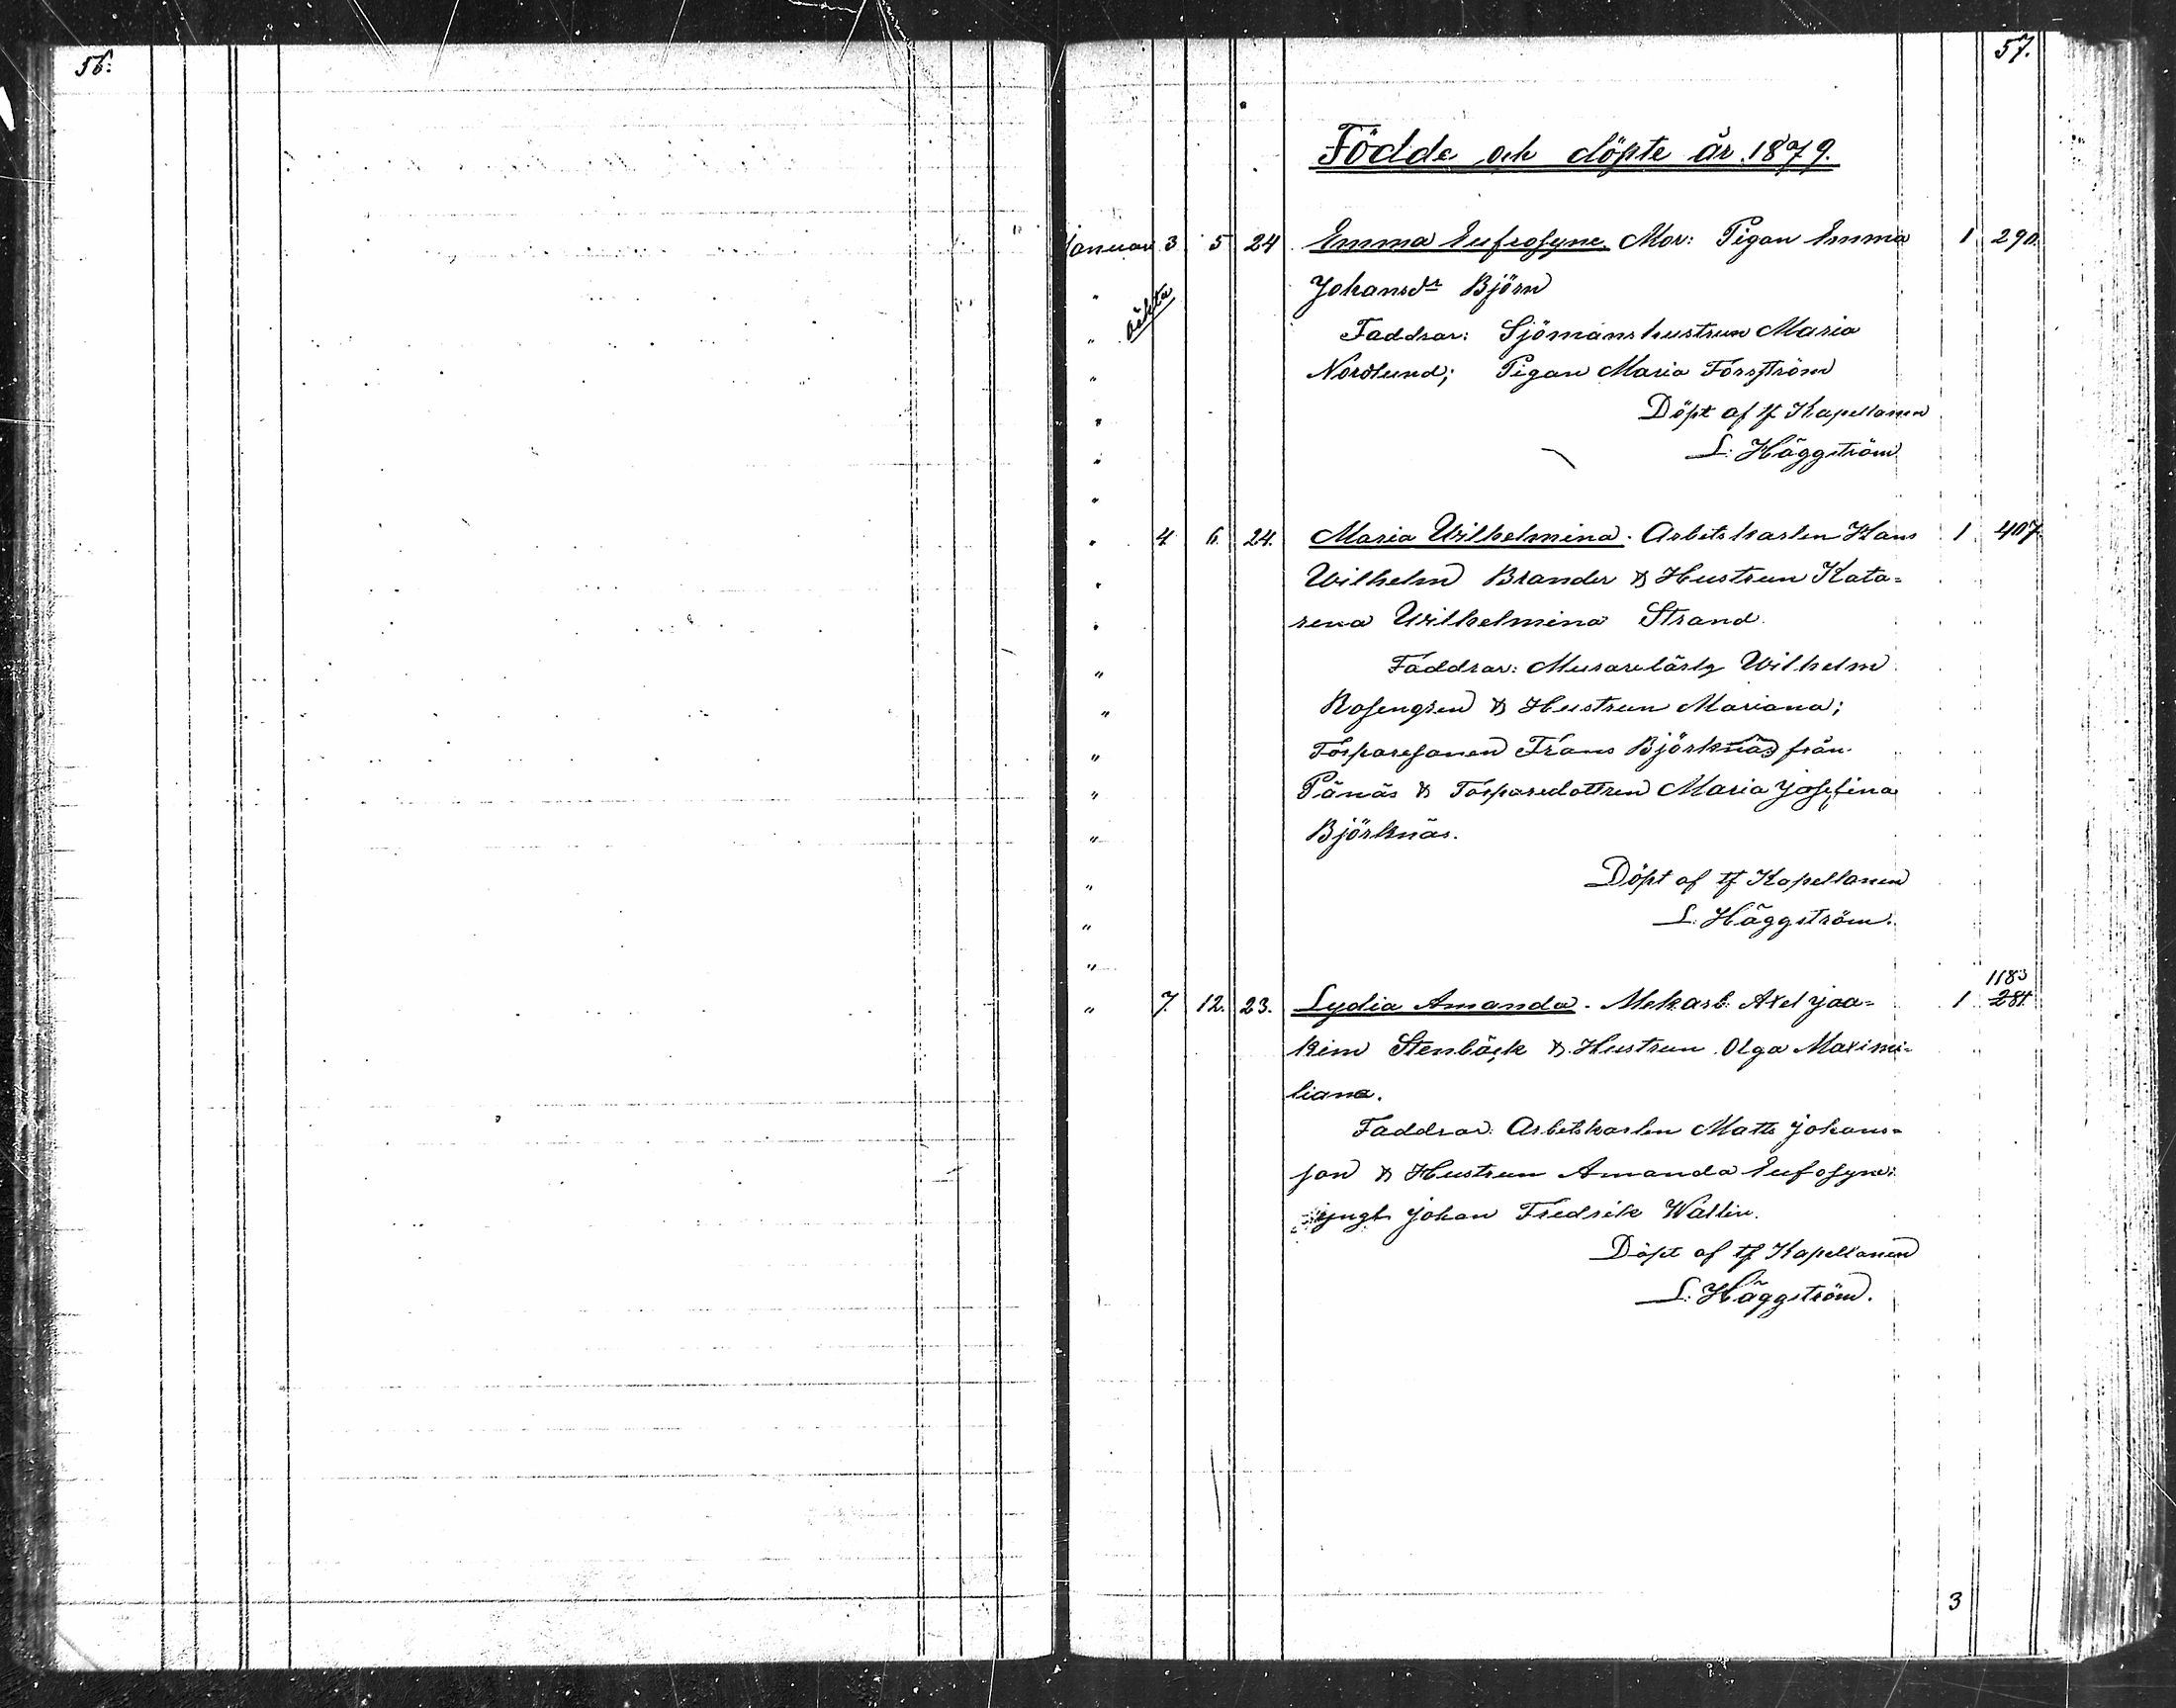 56.
57.
Födde och döpte år 1879.
Januari 3 5 24 Emma Eufrosyne. Mor: Pigan Emma 1 290.
oäkta
Johansdr Björn
Faddrar: Sjömanshustrun Maria
Nordlund; Pigan Maria Forsström
Döpt af tf Kapellanen
L. Häggström
" 4 6. 24. Maria Wilhelmina. Arbetskarlen Hans 1 407
Wilhelm Brander & Hustrun Kata=
rina Wilhelmina Strand.
Faddrar: Murarelärlg Wilhelm
Rosengren & Hustrun Mariana;
Torparesonen Frans Björknäs från
Pånäs & Torparedottren Maria Josefina
Björknäs.
Döpt af tf Kapellanen
L. Häggström.
1183
" 7. 12. 23. Lydia Amanda. Mek.arb. Axel Joa= 1 284.
kim Stenbäck & Hustrun Olga Maximi=
liana.
Faddrar: Arbetskarlen Matts Johans=
son & Hustrun Amanda Eufosyne;
yngl. Johan Fredrik Wallin.
Döpt af tf Kapellanen
L. Häggström.
3